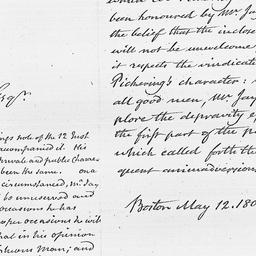 been honoured by Mr. Jay
the belief that the inclose
will not be unwelcome
it respects the vindicate
Pickering's character:
all good men, Mr. Jay
plore the depravity of
the first part of the p
which called forth the
quent animadversion
Boston May 12. 180
Esqr.
ings note of the 12 Inst
accompanied it. His
rivate and public Charac
been the same. on a
circumstanced, Mr. Jay
to be unreserved and
occasions he has
oper occasions he will
that in his opinion
man; and